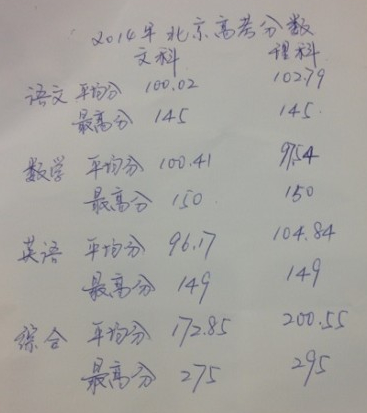 2014年北京高考分数
文科 理科
语文 平均分 100.02 102.79
最高分 145 145
数学 平均分 100.41 97.54
最高分 150 150
英语 平均分 96.17 104.84
最高分 149 149
综合 平均分 172.85 200.55
最高分 275 295